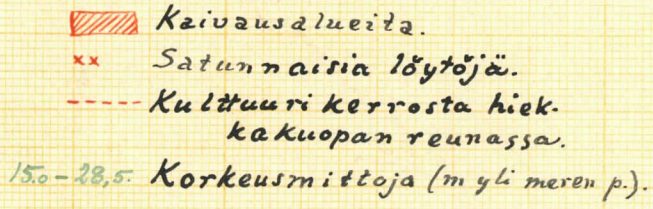 Kaivausalueita.
Satunnaisia löytöjä.
Kulttuuri kerrosta hiek-
kakuopan reunassa.
15.0 - 28,5. Korkeusmittoja (m yli meren p.).